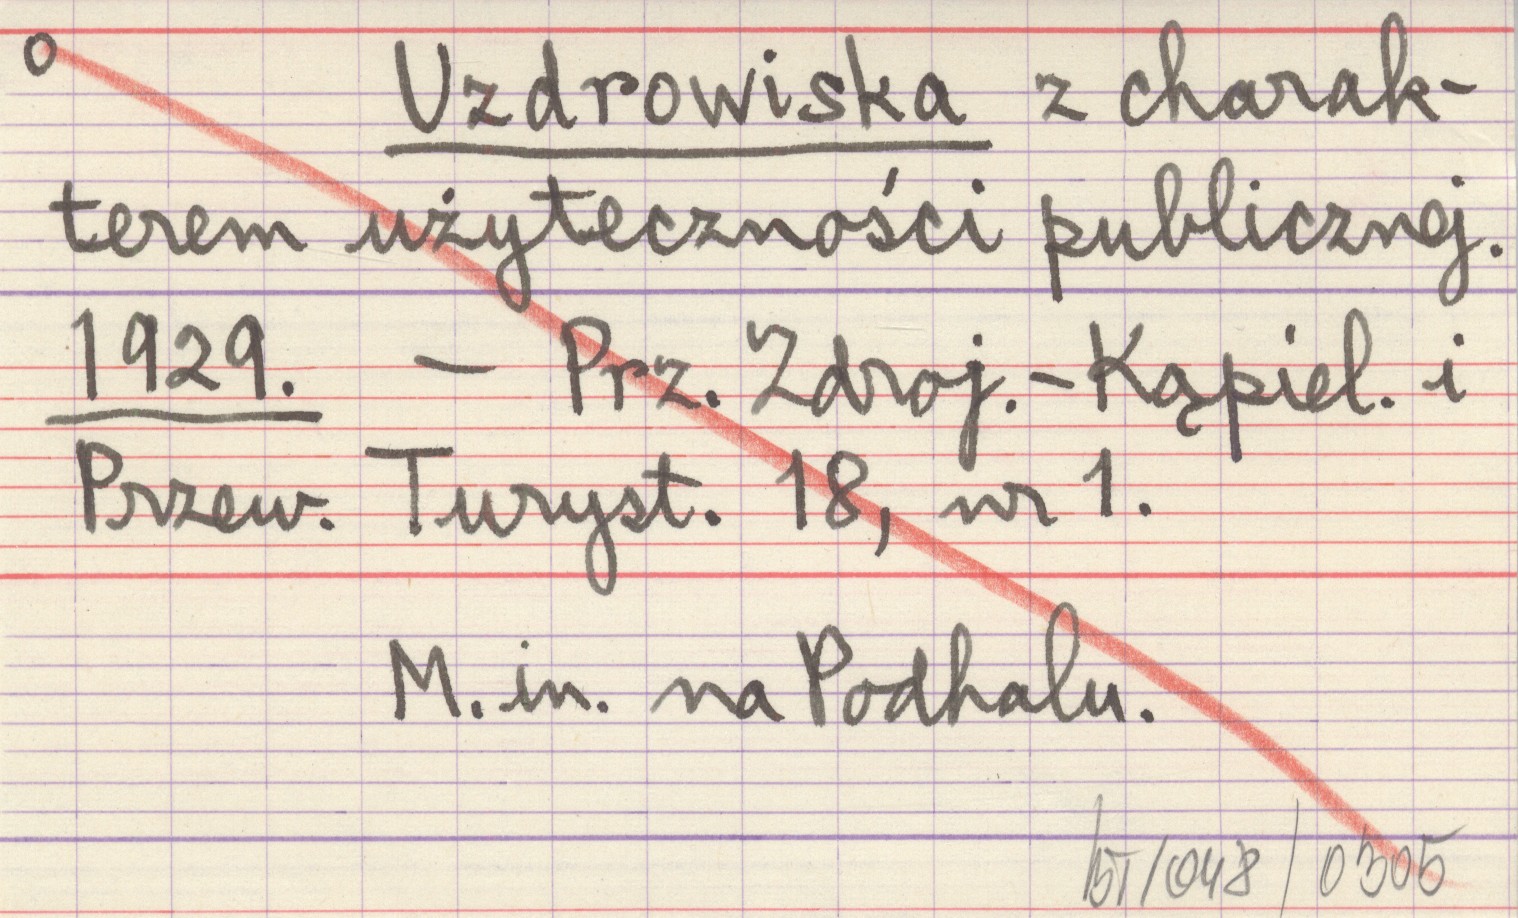 o Uzdrowiska z charak-
terem użyteczności publicznej.
1929. – Prz. Zdroj.-Kąpiel. i
Przew. Turyst. 18, nr 1.
M. in. na Podhalu.
BT/048/0305